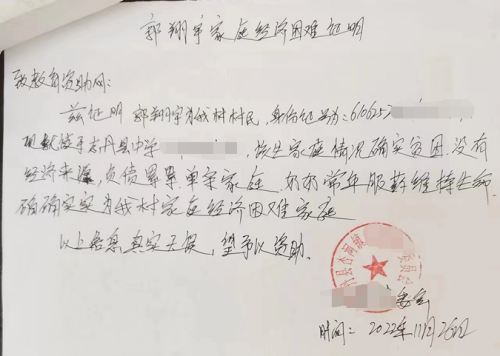 郭翔宇家庭经济困难证明
致教育资助网:
兹证明 郭翔宇为我村村民,身份证号为:610625
现就读于志丹县中学 该生家庭情况确实贫困.没有
经济来源,负债累累.单亲家庭.奶奶常年服药维持生命.
确确实实为我村家庭经济困难家庭
以上信息真实无误,望予以资助.
丹县杏河镇
委员会
时间:2022年11月26日